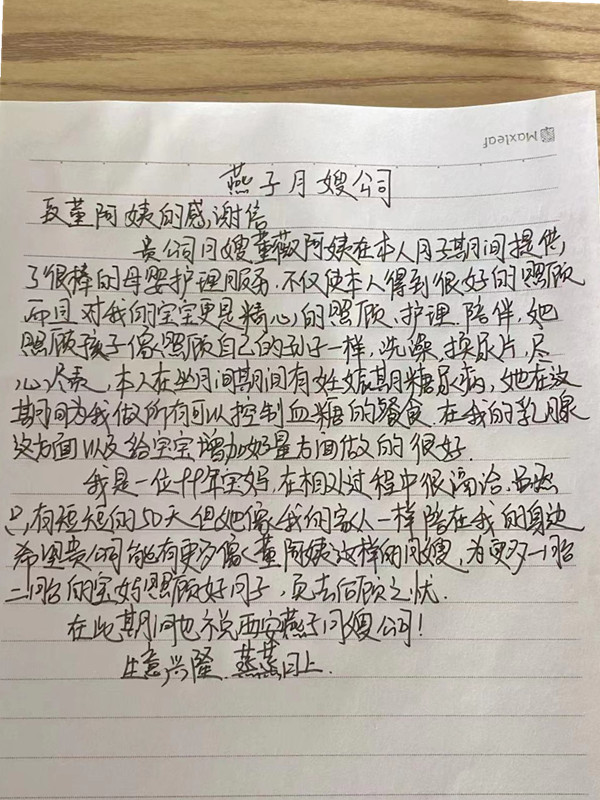 Maxleaf
燕子月嫂公司
致董阿姨的感谢信
贵公司月嫂董薇阿姨在本人月子期间提供
了很棒的母婴护理服务.不仅使本人得到很好的照顾
而且对我的宝宝更是精心的照顾、护理.陪伴,她
照顾孩子像照顾自己的孙子一样,洗澡,换尿片,尽
心尽责,本人在坐月间期间有妊娠期糖尿病,她在这
期间为我做所有可以控制血糖的餐食.在我的乳腺
这方面以及给宝宝增加奶量方面做的很好.
我是一位99年宝妈,在相处过程中很融洽.虽然
只有短短的50天但她像我的家人一样陪在我的身边
希望贵公司能有更多像董阿姨这样的月嫂,为更多一胎
二胎的宝妈照顾好月子,无后顾之忧.
在此期间也祝西安燕子月嫂公司!
生意兴隆.蒸蒸日上.